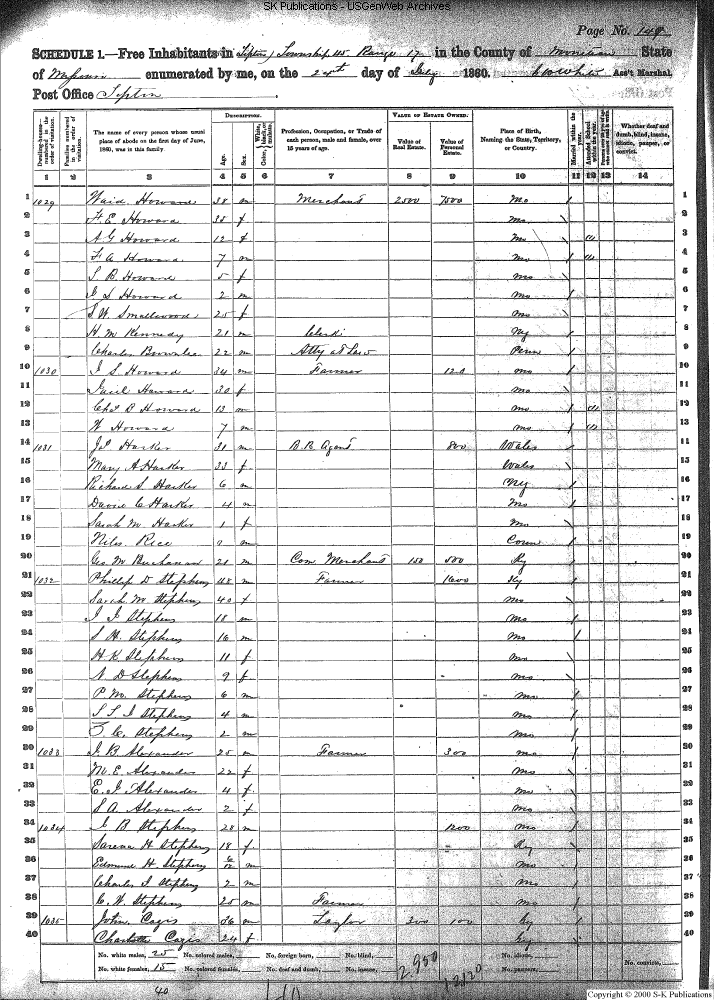 SK Publications - USGenWeb Archives
Page No. 149
SCHEDULE 1.—Free Inhabitants in Tipton, Township 45 Range 17 in the County of Moniteau State
of Missouri enumerated by me, on the day of July 1860. Ass't Marshal.
Post Office Tipton
DESCRIPTION. VALUE OF ESTATE OWNED.
Dwelling-houses—numbered in the order of visitation.
Families numbered in the order of visitation.
The name of every person whose usual place of abode on the first day of June, 1860, was in this family.
Age.
Sex.
Color, White, black, or mulatto.
Profession, Occupation, or Trade of each person, male and female, over 15 years of age.
Value of Real Estate.
Value of Personal Estate.
Place of Birth, Naming the State, Territory, or Country.
Married within the year.
Attended School within the year.
Whether deaf and dumb, blind, insane, idiotic, pauper, or convict.
1 2 3 4 5 6 7 8 9 10 11 12 13 14
1 1029 Howard 38 m Merchant 2500 7500 Mo / 1
2 F. E. Howard 35 f Mo 2
3 A G Howard 12 f Mo 3
4 F A Howard 7 m Mo / 4
5 S. B. Howard 5 f Mo 5
6 S Howard 2 m Mo / 6
7 Smallwood 25 f Mo 7
8 H. M Kennedy 21 m Clerk Ky / 8
9 Charles Brownlee 22 m Atty at Law Penn / 9
10 1030 J S. Howard 34 m Farmer 120 Mo / 10
11 Howard 30 f Mo 11
12 Chas B Howard 13 m Mo / 12
13 W Howard 7 m Mo / 13
14 1031 Jas Harker 31 m R. R. Agent 800 Wales / 14
15 Mary A Harker 33 f Wales 15
16 Richard S. Harker 6 m Ny / 16
17 C Harker 4 m Mo / 17
18 Sarah M Harker 1 f Mo 18
19 Rice m Conn / 19
20 Geo. M Buchanan 21 m Com. Merchant 150 500 Ky / 20
21 1032 Phillip D Stephens 48 m Farmer 1600 Ky / 21
22 Sarah M Stephens 40 f Mo 22
23 J. J Stephens 18 m Mo / 23
24 S H. Stephens 16 m Mo / 24
25 H K. Stephens 11 f Mo 25
26 N. D Stephens 9 f Mo 26
27 P. M. Stephens 6 m Mo / 27
28 S. T. J Stephens 4 m Mo / 28
29 C. Stephens 2 m Mo / 29
30 1033 J. B Alexander 25 m Farmer 300 Mo / 30
31 M. E. Alexander 22 f Mo 31
32 E. J. Alexander 4 f Mo 32
33 S A. Alexander 2 f Mo 33
34 1034 J B Stephens 28 m 1200 Mo / 34
35 H Stephens 18 f Ky 35
36 Edmund H. Stephens m Mo / 36
37 Charles J Stephens 2 m Mo / 37
38 C. W Stephens 25 m Farmer Mo / 38
39 1035 John Cagis 36 m Taylor 300 100 Ky / 39
40 Charlotte Cagis 24 f Ky 40
No. white males, 25 No. colored males, No. foreign born, No. blind, No. idiotic,
No. white females, 15 No. colored females, No. deaf and dumb, No. insane, 2.950 12120 No. paupers, No. convicts,
40
Copyright © 2000 S-K Publications